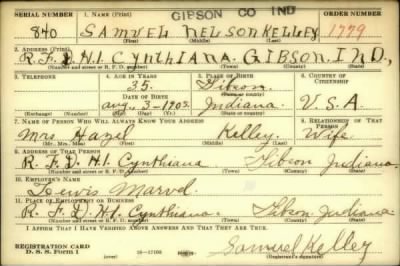 GIBSON CO IND
SERIAL NUMBER 1. NAME (Print)
840 SAMUEL NELSON KELLEY 1779
(First) (Middle) (Last)
2. ADDRESS (Print)
R.F.D. H.1. CYNTHIANA. GIBSON. IND.,
(Number and street or R. F. D. number) (Town) (County) (State)
3. TELEPHONE 4. AGE IN YEARS 5. PLACE OF BIRTH 6. COUNTRY OF CITIZENSHIP
35. Gibson.
DATE OF BIRTH (Town or county)
Aug, 3-1905 Indiana. U.S.A.
(Exchange) (No.) (Mo.) (Day) (Yr.) (State or country)
7. NAME OF PERSON WHO WILL ALWAYS KNOW YOUR ADDRESS 8. RELATIONSHIP OF THAT PERSON
Mrs. Hazel Kelley. Wife.
(Mr., Mrs., Miss) (First) (Middle) (Last)
9. ADDRESS OF THAT PERSON
R.F.D. H.1. Cynthiana Gibson Indiana.
(Number and street or R. F. D. number) (Town) (County) (State)
10. EMPLOYER'S NAME
Lewis Marvel.
11. PLACE OF EMPLOYMENT OR BUSINESS
R.F.D. H.1. Cynthiana. Gibson. Indiana
(Number and street or R. F. D. number) (Town) (County) (State)
I AFFIRM THAT I HAVE VERIFIED ABOVE ANSWERS AND THAT THEY ARE TRUE.
REGISTRATION CARD
D. S. S. Form 1 16-17105 Samuel Kelley
(Registrant's signature)